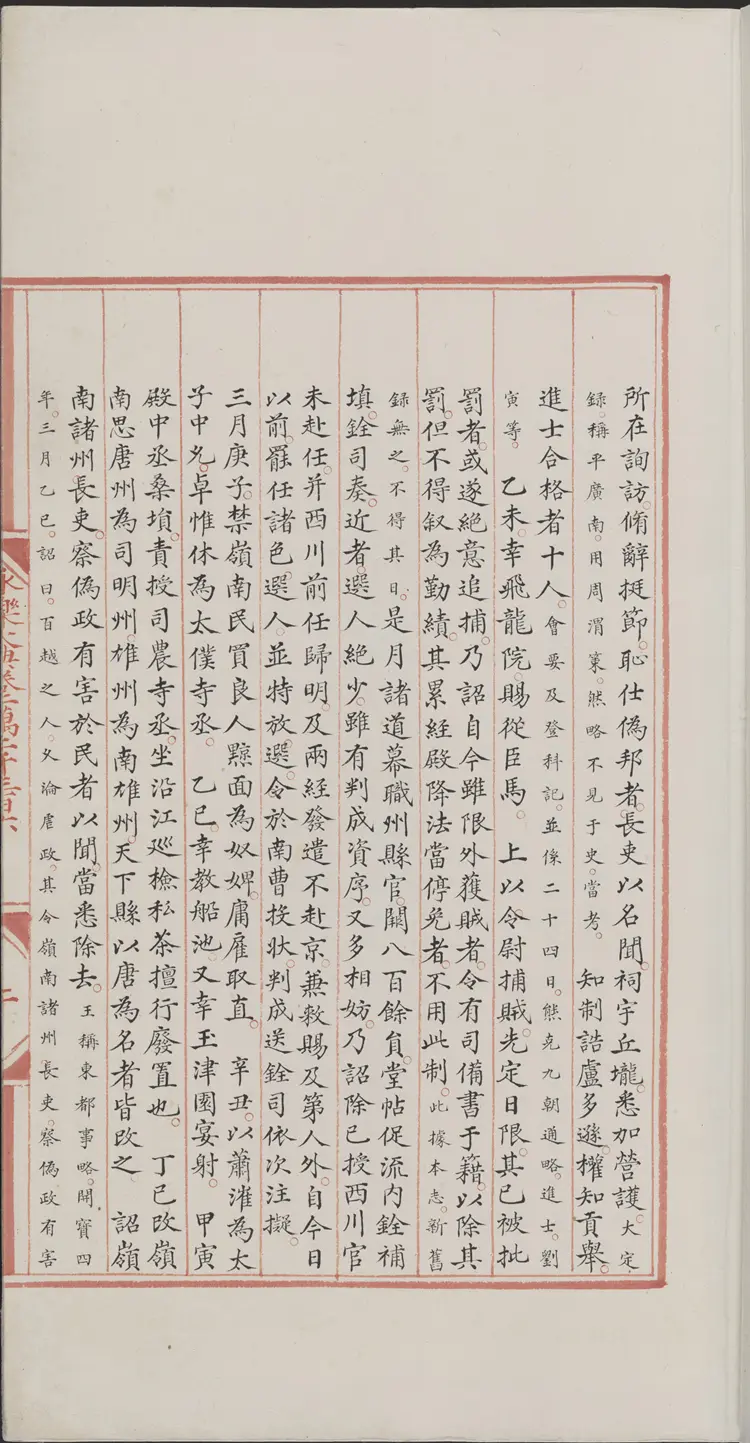 所在詢訪。脩辭挺節。恥仕偽邦者。長吏以名聞。祠宇丘壠。悉加營護。大定
録。稱平廣南。用周渭策。然略不見于史。當考。 知制誥盧多遜。權知貢舉。
進士合格者十人。會要及登科記。並係二十四日。熊克九朝通略。進士。劉
寅等。 乙未。幸飛龍院。賜從臣馬。 上以令尉捕賊。先定日限。其已被批
罰者。或遂絕意追捕。乃詔自今雖限外獲賊者。令有司備書于籍。以除其
罰。但不得叙為勤績。其累經殿降法當停免者。不用此制。此據本志。新舊
録無之。不得其日。是月諸道幕職州縣官。闕八百餘員。堂帖促流內銓補
填。銓司奏。近者。選人絕少。雖有判成資序。又多相妨。乃詔除已授西川官
未赴任。并西川前任歸明。及兩經發遣不赴京。兼敕賜及第人外。自今日
以前。罷任諸色選人。並特放選。令於南曹投狀。判成送銓司依次注擬。
三月庚子。禁嶺南民買良人黥面為奴婢。庸雇取直。 辛丑。以蕭漼為太
子中允。卓惟休為太僕寺丞。 乙巳。幸教船池。又幸玉津園宴射。 甲寅
殿中丞桑塤。責授司農寺丞。坐沿江巡檢私茶擅行廢置也。 丁巳改嶺
南思唐州為司明州。雄州為南雄州。天下縣以唐為名者皆改之。 詔嶺
南諸州。長吏。察偽政有害於民者以聞。當悉除去。王稱東都事略。開寶四
年。三月乙巳。詔曰。百越之人。久淪虐政。其令嶺南諸州長吏。察偽政有害
永樂大典卷一萬二千三百六